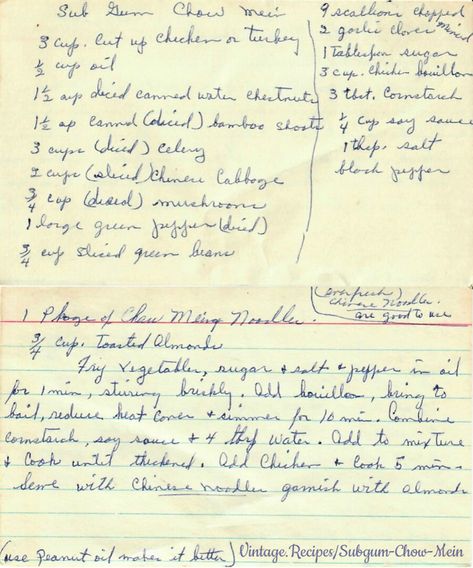 Sub Gum Chow Mein
3 cup. cut up chicken or turkey
1/2 cup oil
1 1/2 cup diced canned water chestnuts
1 1/2 cup canned (diced) bamboo shoots
3 cups (diced) celery
2 cups (sliced) Chinese Cabbage
3/4 cup (diced) mushrooms
1 large green pepper (diced)
3/4 cup sliced green beans
9 scallions chopped
2 garlic cloves minced
1 Tablespoon sugar
3 cup. chicken bouillon
3 tbst. Cornstarch
1/4 cup soy sauce
1 thsp. salt
black pepper
(everfresh)
chinese Noodles.
are good to use
1 Pkage of Chow Mein Noodles.
3/4 cup. Toasted Almonds
Fry vegetables, sugar & salt & pepper in oil
for 1 min, stirring briskly. Add bouillon, bring to
boil, reduce heat cover & simmer for 10 min. Combine
cornstarch, soy sauce & 4 tbsp water. Add to mixture
& cook until thickened. Add Chicken & cook 5 min.
Serve with Chinese noodles garnish with almonds
(use Peanut oil makes it better)
Vintage.Recipes/Subgum-Chow-Mein